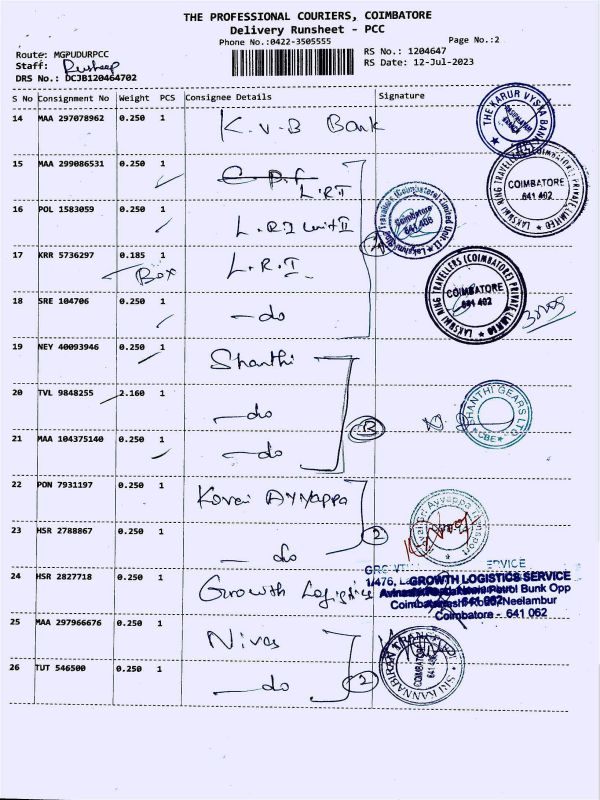 THE PROFESSIONAL COURIERS, COIMBATORE
Delivery Runsheet - PCC
Phone No.:0422-3505555 Page No.:2
Route: MGPUDURPCC RS No.: 1204647
Staff: RS Date: 12-Jul-2023
DRS No.: DCJB120464702
S No Consignment No Weight PCS Consignee Details Signature
14 MAA 297078962 0.250 1 K.V.B Bank
THE KARUR VYSYA BANK
15 MAA 299086531 0.250 1 L.R.I
LAKSHMI RING TRAVELLERS (COIMBATORE) PRIVATE LIMITED
COIMBATORE
641 402
16 POL 1583059 0.250 1 L.R.I Unit II
Coimbatore
17 KRR 5736297 0.185 1 L.R.I
Box
LAKSHMI RING TRAVELLERS (COIMBATORE) PRIVATE LIMITED
COIMBATORE
641 402
18 SRE 104706 0.250 1 - do
19 NEY 40093946 0.250 1 Shanthi
20 TVL 9848255 2.160 1 - do
SHANTHI GEARS LTD
CBE
21 MAA 104375140 0.250 1 - do
22 PON 7931197 0.250 1 Kovai Ayyappa
23 HSR 2788867 0.250 1 - do
2
24 HSR 2827718 0.250 1 Growth Logistics
GROWTH LOGISTICS SERVICE
Petrol Bunk Opp
Neelambur
Coimbatore - 641 062
25 MAA 297966676 0.250 1 Nivas
26 TUT 546500 0.250 1 - do
2
COIMBATORE